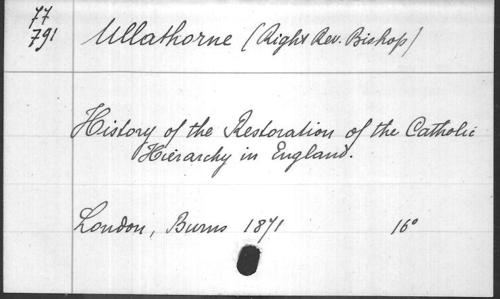 77
791
Ullathorne (Right Rev. Bishop)
History of the Restoration of the Catholic
Hierarchy in England.
London, Burns 1871 16°